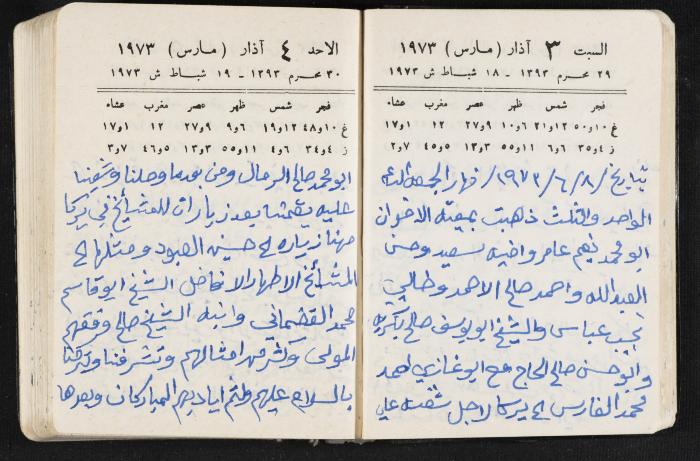 السبت ٣ آذار (مارس) ١٩٧٣
٢٩ محرم ١٣٩٣ - ١٨ شباط ش ١٩٧٣
فجر شمس ظهر عصر مغرب عشاء
غ ١٠و٥٠ ١٢و٢١ ٦و١٠ ٩و٢٧ ١٢ ١و١٧
ز ٤و٣٥ ٦و٦ ١١و٥٥ ٣و١٣ ٥و٤٥ ٧و٢
بتاريخ /٨/٦/١٩٧٣/ نهار الجمعة
الواحد والثلث ذهبت بمعية الاخوان
ابو محمد فهيم عامر واخيه سعيد وحسن
العبدالله واحمد صالح الاحمد وخالي
نجيب عباس والشيخ ابو يوسف صالح
وابو حسن صالح الحاج مع ابو غازي احمد
محمد الفارس الى يركا لاجل شقت علي
الاحد ٤ آذار (مارس) ١٩٧٣
٣٠ محرم ١٣٩٣ - ١٩ شباط ش ١٩٧٣
فجر شمس ظهر عصر مغرب عشاء
غ ١٠و٤٨ ١٢و١٩ ٦و٩ ٩و٢٧ ١٢ ١و١٧
ز ٤و٣٤ ٦و٤ ١١و٥٥ ٣و١٣ ٥و٤٦ ٧و٣
ابو محمد صالح الرمال ومن بعدما وصلنا وشقينا
عليه بعد زيارات للمشائخ في يركا
منها زياره الى حسين العبود ومثلها الى
المشائخ الاطهار الافاضل الشيخ ابو قاسم
محمد القضماني وابنه الشيخ صالح وفقهم
المولى وكثر من امثالهم وتشرفنا
بالسلام عليهم ولثم اياديهم المباركات وبعدها